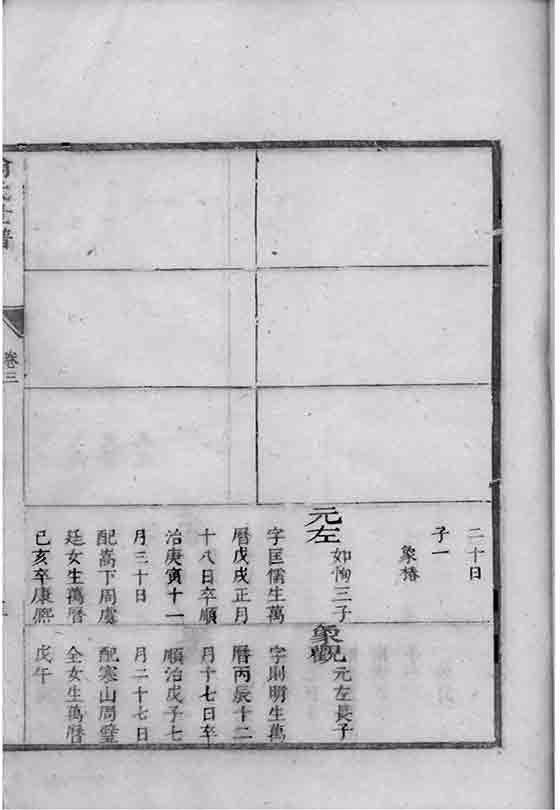 二十日
子一
象椿
元左
如恂三子
字匡儒生萬
曆戊戌正月
十八日卒順
治庚寅十一
月三十日
配嵩下周虞
廷女生萬曆
己亥卒康熙
戊午
象觀
元左長子
字則明生萬
曆丙辰十二
月十七日卒
順治戊子七
月二十七日
配寒山周璧
全女生萬曆
氏世譜
卷三